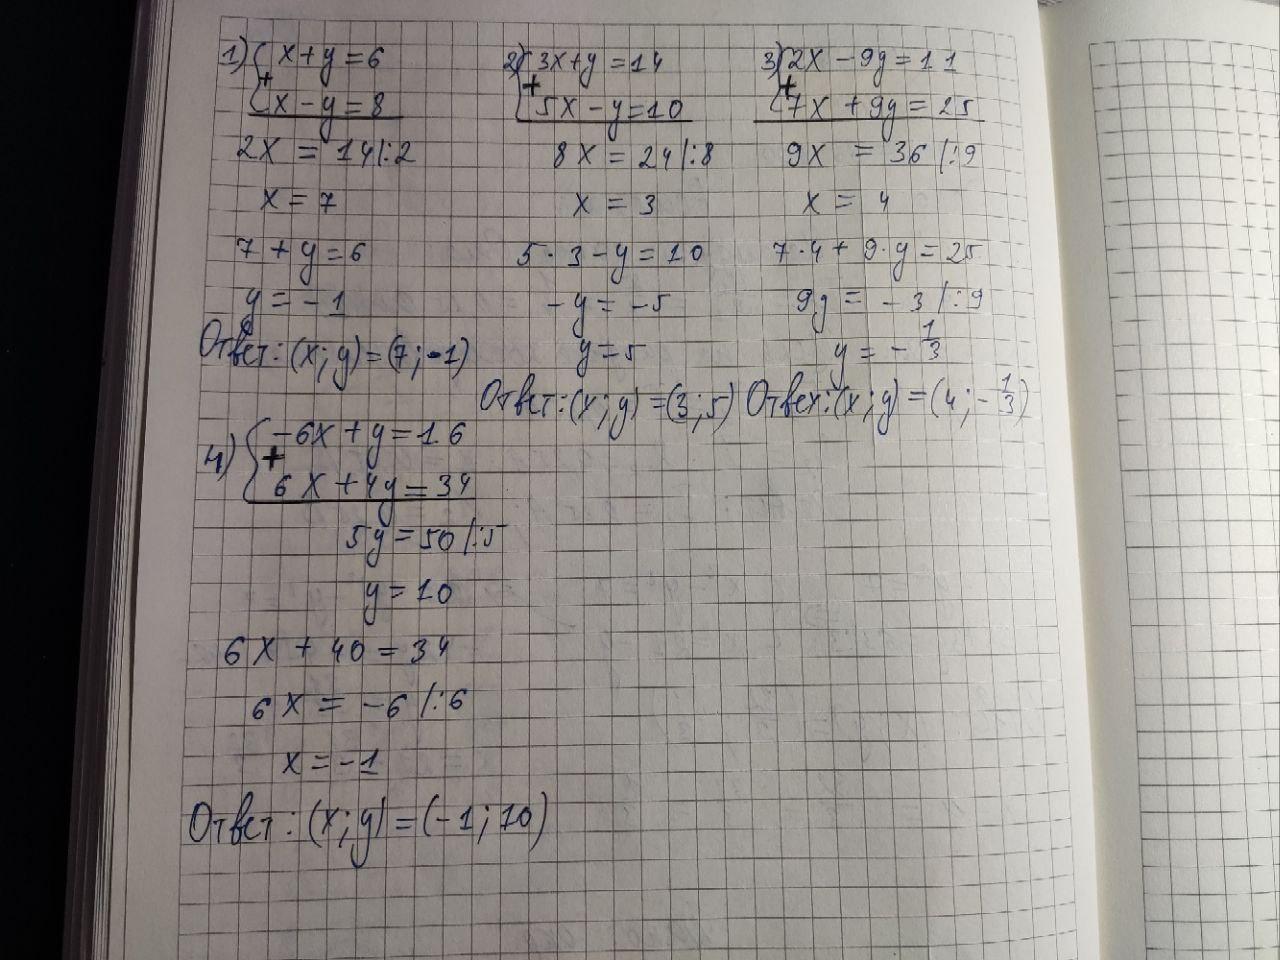 1) { x + y = 6
+
x - y = 8
2x = 14 |:2
x = 7
7 + y = 6
y = -1
Ответ: (x; y) = (7; -1)
2) { 3x + y = 14
+
5x - y = 10
8x = 24 |:8
x = 3
5 · 3 - y = 10
- y = -5
y = 5
Ответ: (x; y) = (3; 5)
3) { 2x - 9y = 11
+
7x + 9y = 25
9x = 36 |:9
x = 4
7 · 4 + 9 · y = 25
9y = -3 |:9
y = - 1/3
Ответ: (x; y) = (4; - 1/3)
4) { -6x + y = 16
+
6x + 4y = 34
5y = 50 |:5
y = 10
6x + 40 = 34
6x = -6 |:6
x = -1
Ответ: (x; y) = (-1; 10)